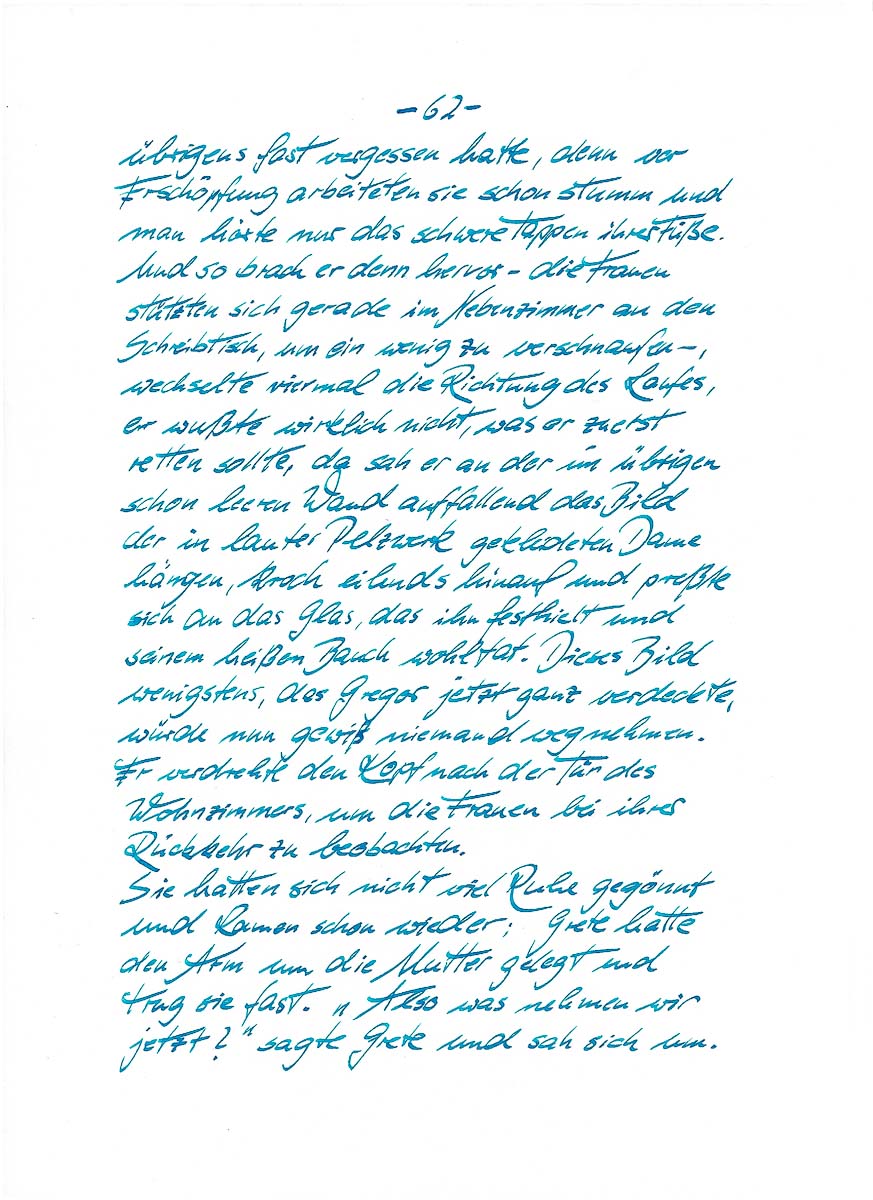 -62-
übrigens fast vergessen hatte, denn vor
Erschöpfung arbeiteten sie schon stumm und
man hörte nur das schwere Tappen ihrer Füße.
Und so brach er denn hervor - die Frauen
stützten sich gerade im Nebenzimmer an den
Schreibtisch, um ein wenig zu verschnaufen -,
wechselte viermal die Richtung des Laufes,
er wußte wirklich nicht, was er zuerst
retten sollte, da sah er an der im übrigen
schon leeren Wand auffallend das Bild
der in lauter Pelzwerk gekleideten Dame
hängen, kroch eilends hinauf und preßte
sich an das Glas, das ihn festhielt und
seinem heißen Bauch wohltat. Dieses Bild
wenigstens, das Gregor jetzt ganz verdeckte,
würde nun gewiß niemand wegnehmen.
Er verdrehte den Kopf nach der Tür des
Wohnzimmers, um die Frauen bei ihrer
Rückkehr zu beobachten.
Sie hatten sich nicht viel Ruhe gegönnt
und kamen schon wieder; Grete hatte
den Arm um die Mutter gelegt und
trug sie fast. "Also was nehmen wir
jetzt?" sagte Grete und sah sich um.